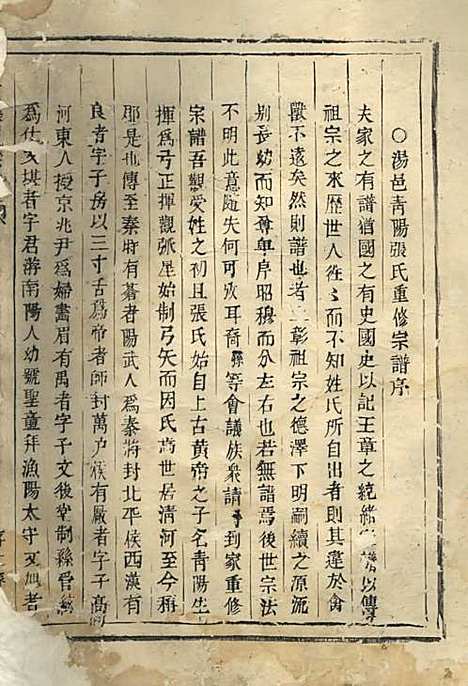 ○湯邑青陽張氏重修宗譜序
夫家之有譜猶國之有史國史以記王章之統緒譜以傳
祖宗之來歷世人往々而不知姓氏所自出者則其違於禽
獸不遠矣然則譜也者彰祖宗之德澤下明嗣續之源流
别長幼而知尊卑序昭穆而分左右也若無譜焉後世宗法
不明此意隨失何可攷耳裔孫等會議族衆請予到家重修
宗譜吾觀受姓之初且張氏始自上古黄帝之子名青陽生
揮爲弓正揮觀弧星始制弓矢而因氏焉世居清河至今稱
耶是也傳至秦時有蒼者陽武人爲秦將封北平侯西漢有
良者字子房以三寸舌爲帝者師封萬户侯有厰者字子高
河東人授京兆尹爲婦畫眉有禹者字子文後堂制絲
爲仕又堪者字君游南陽人幼號聖童拜漁陽太守又旭者